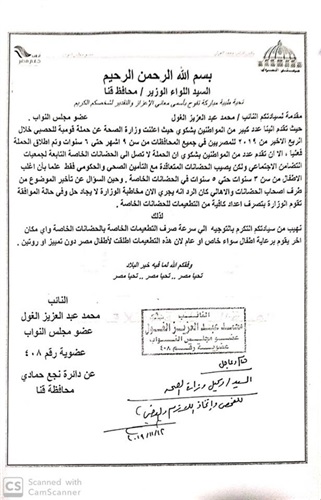 بسم الله الرحمن الرحيم
السيد اللواء الوزير / محافظ قنا
تحية طيبة مباركة تفوح بأسمى معاني الإعزاز والتقدير لشخصكم الكريم
مقدمة لسيادتكم النائب / محمد عبد العزيز الغول عضو مجلس النواب .
حيث تقدم الينا عدد كبير من المواطنين بشكوي حيث اعلنت وزارة الصحة عن حملة قومية للحصبي خلال
الربع الاخير من ٢٠١٩ للمصريين في جميع المحافظات من سن ٩ اشهر حتي ٦ سنوات وتم اطلاق الحملة
فعليا ، الا ان تقدم عدد من المواطنين بشكوي ان الحملة لا تصل الي الحضانات الخاصة التابعة لجمعيات
التضامن الاجتماعي ولكن بصيب الحضانات المتعاقدة مع التأمين الصحي والحكومي فقط علما بأن اغلب
الاطفال من سن ٣ سنوات حتي ٥ سنوات في الحضانات الخاصة . وحين السؤال عن تأخير الموضوع من
طرف اصحاب الحضانات والاهالي كان الرد انه يجري الان مخاطبة الوزارة لا يجاد حل وفي حالة الموافقة
تقوم الوزارة بتصرف اعداد كافية من التطعيمات للاطفال .
لذلك
نهيب من سيادتكم التكرم بالتوجيه الي سرعة صرف التطعيمات الخاصة بالحضانات الخاصة واي مكان
اخر يقوم برعاية اطفال سواء خاص او عام لان هذه التطعيمات اطلقت لأطفال مصر دون تمييز او روتين .
وفقكم الله لما فيه خير البلاد
تحيا مصر .. تحيا مصر .. تحيا مصر
النائب
محمد عبد العزيز الغول
عضو مجلس النواب
عضوية رقم ٤٠٨
عن دائرة نجع حمادي
محافظة قنا
النائب
محمد عبد العزيز الغول
عضو مجلس النواب
عضوية رقم ٤٠٨
السيد / وكيل وزارة الصحة
CS Scanned with
CamScanner